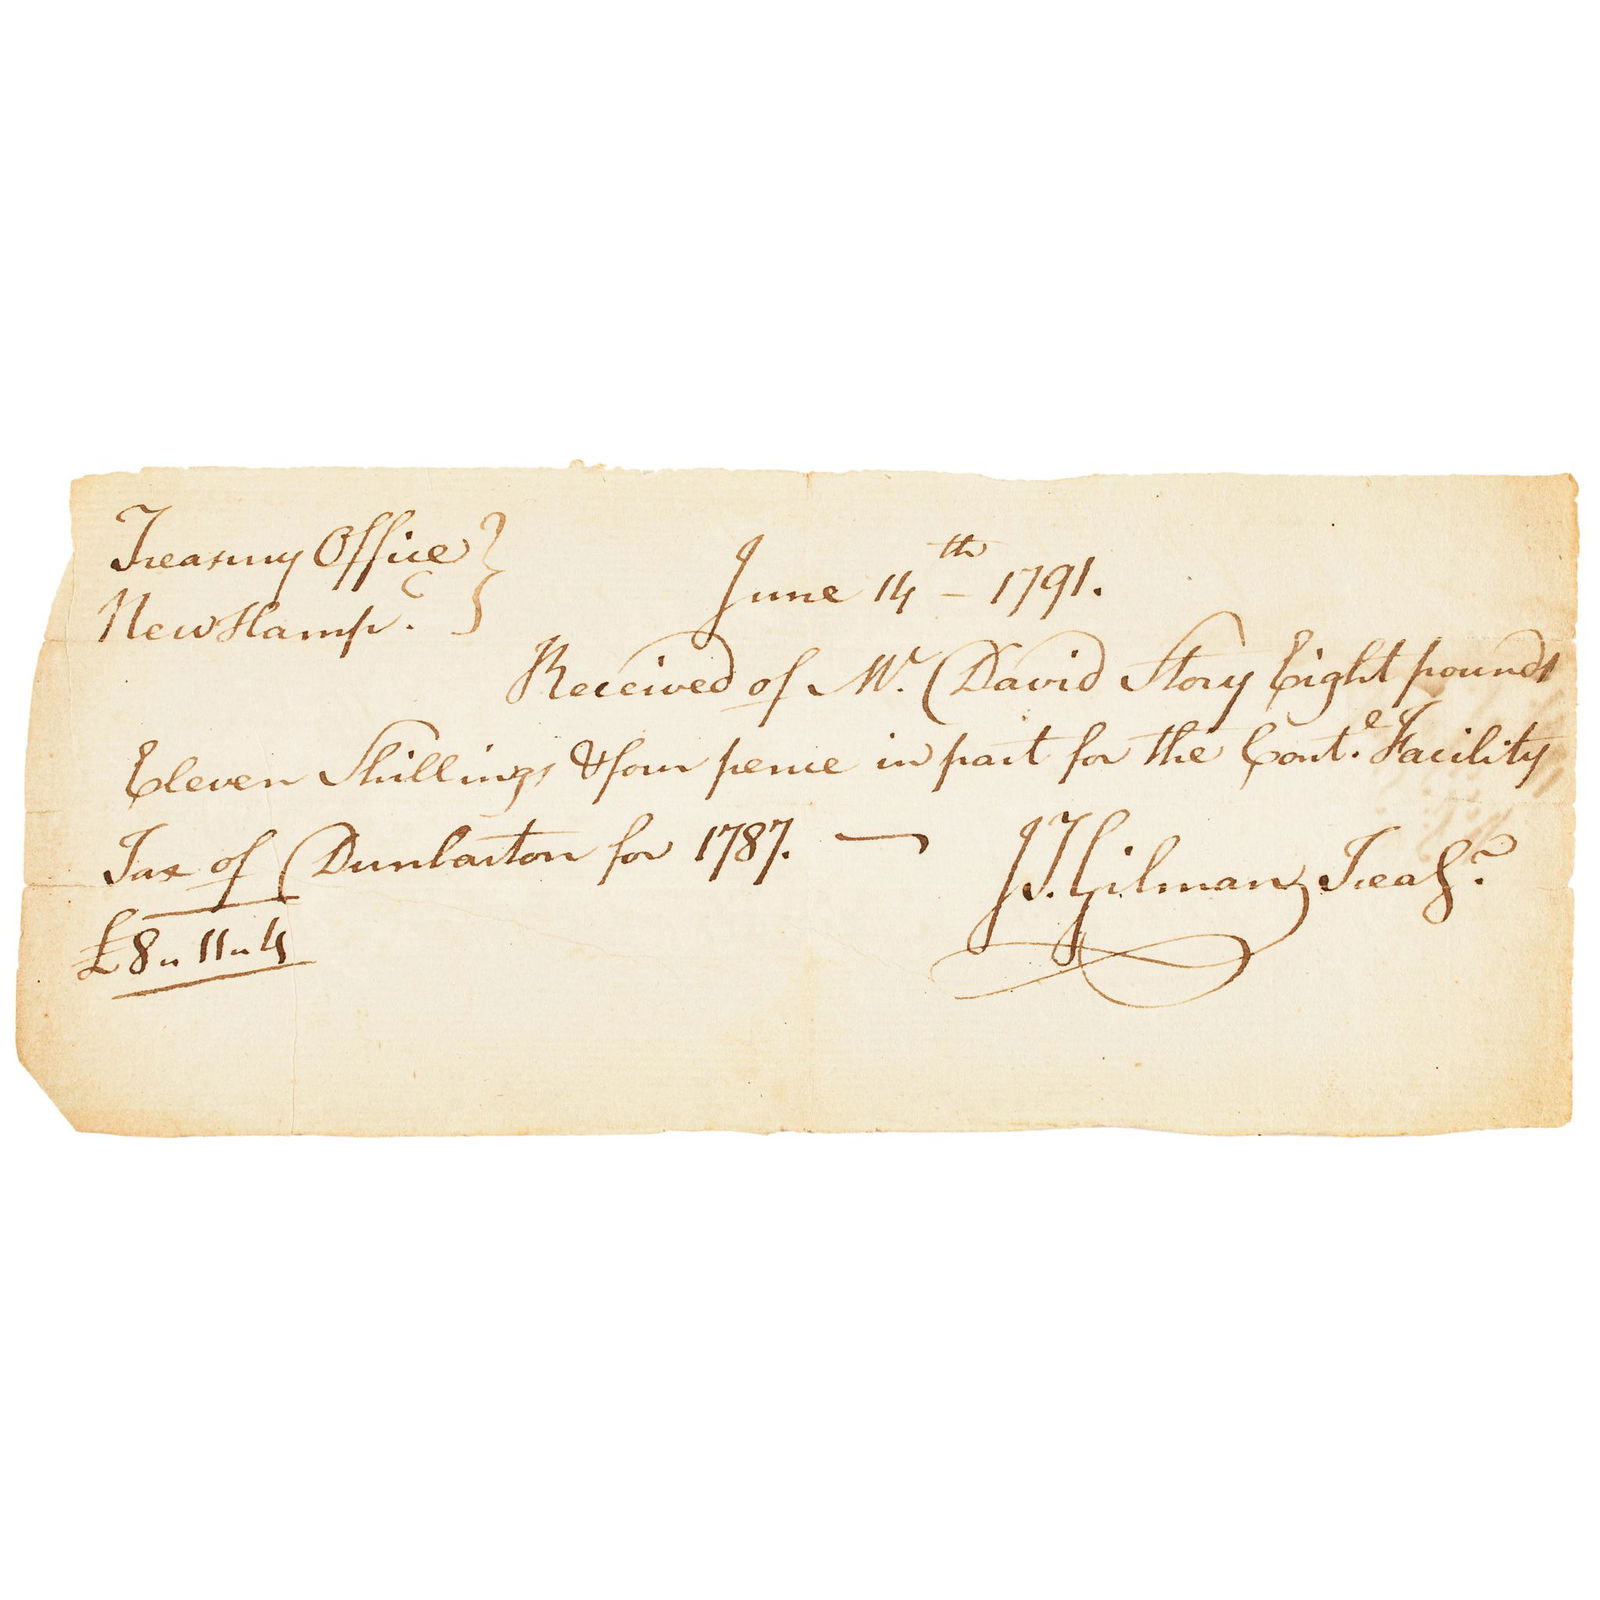 Treasury Office }
New Hamp.e }
June 14th - 1791.
Received of Mr. David Story Eight pounds
Eleven Shillings & four pence in part for the Cont.e Facility
Tax of Dunbarton for 1787. —
J.T. Gilman Treasr.
£8 " 11 " 4